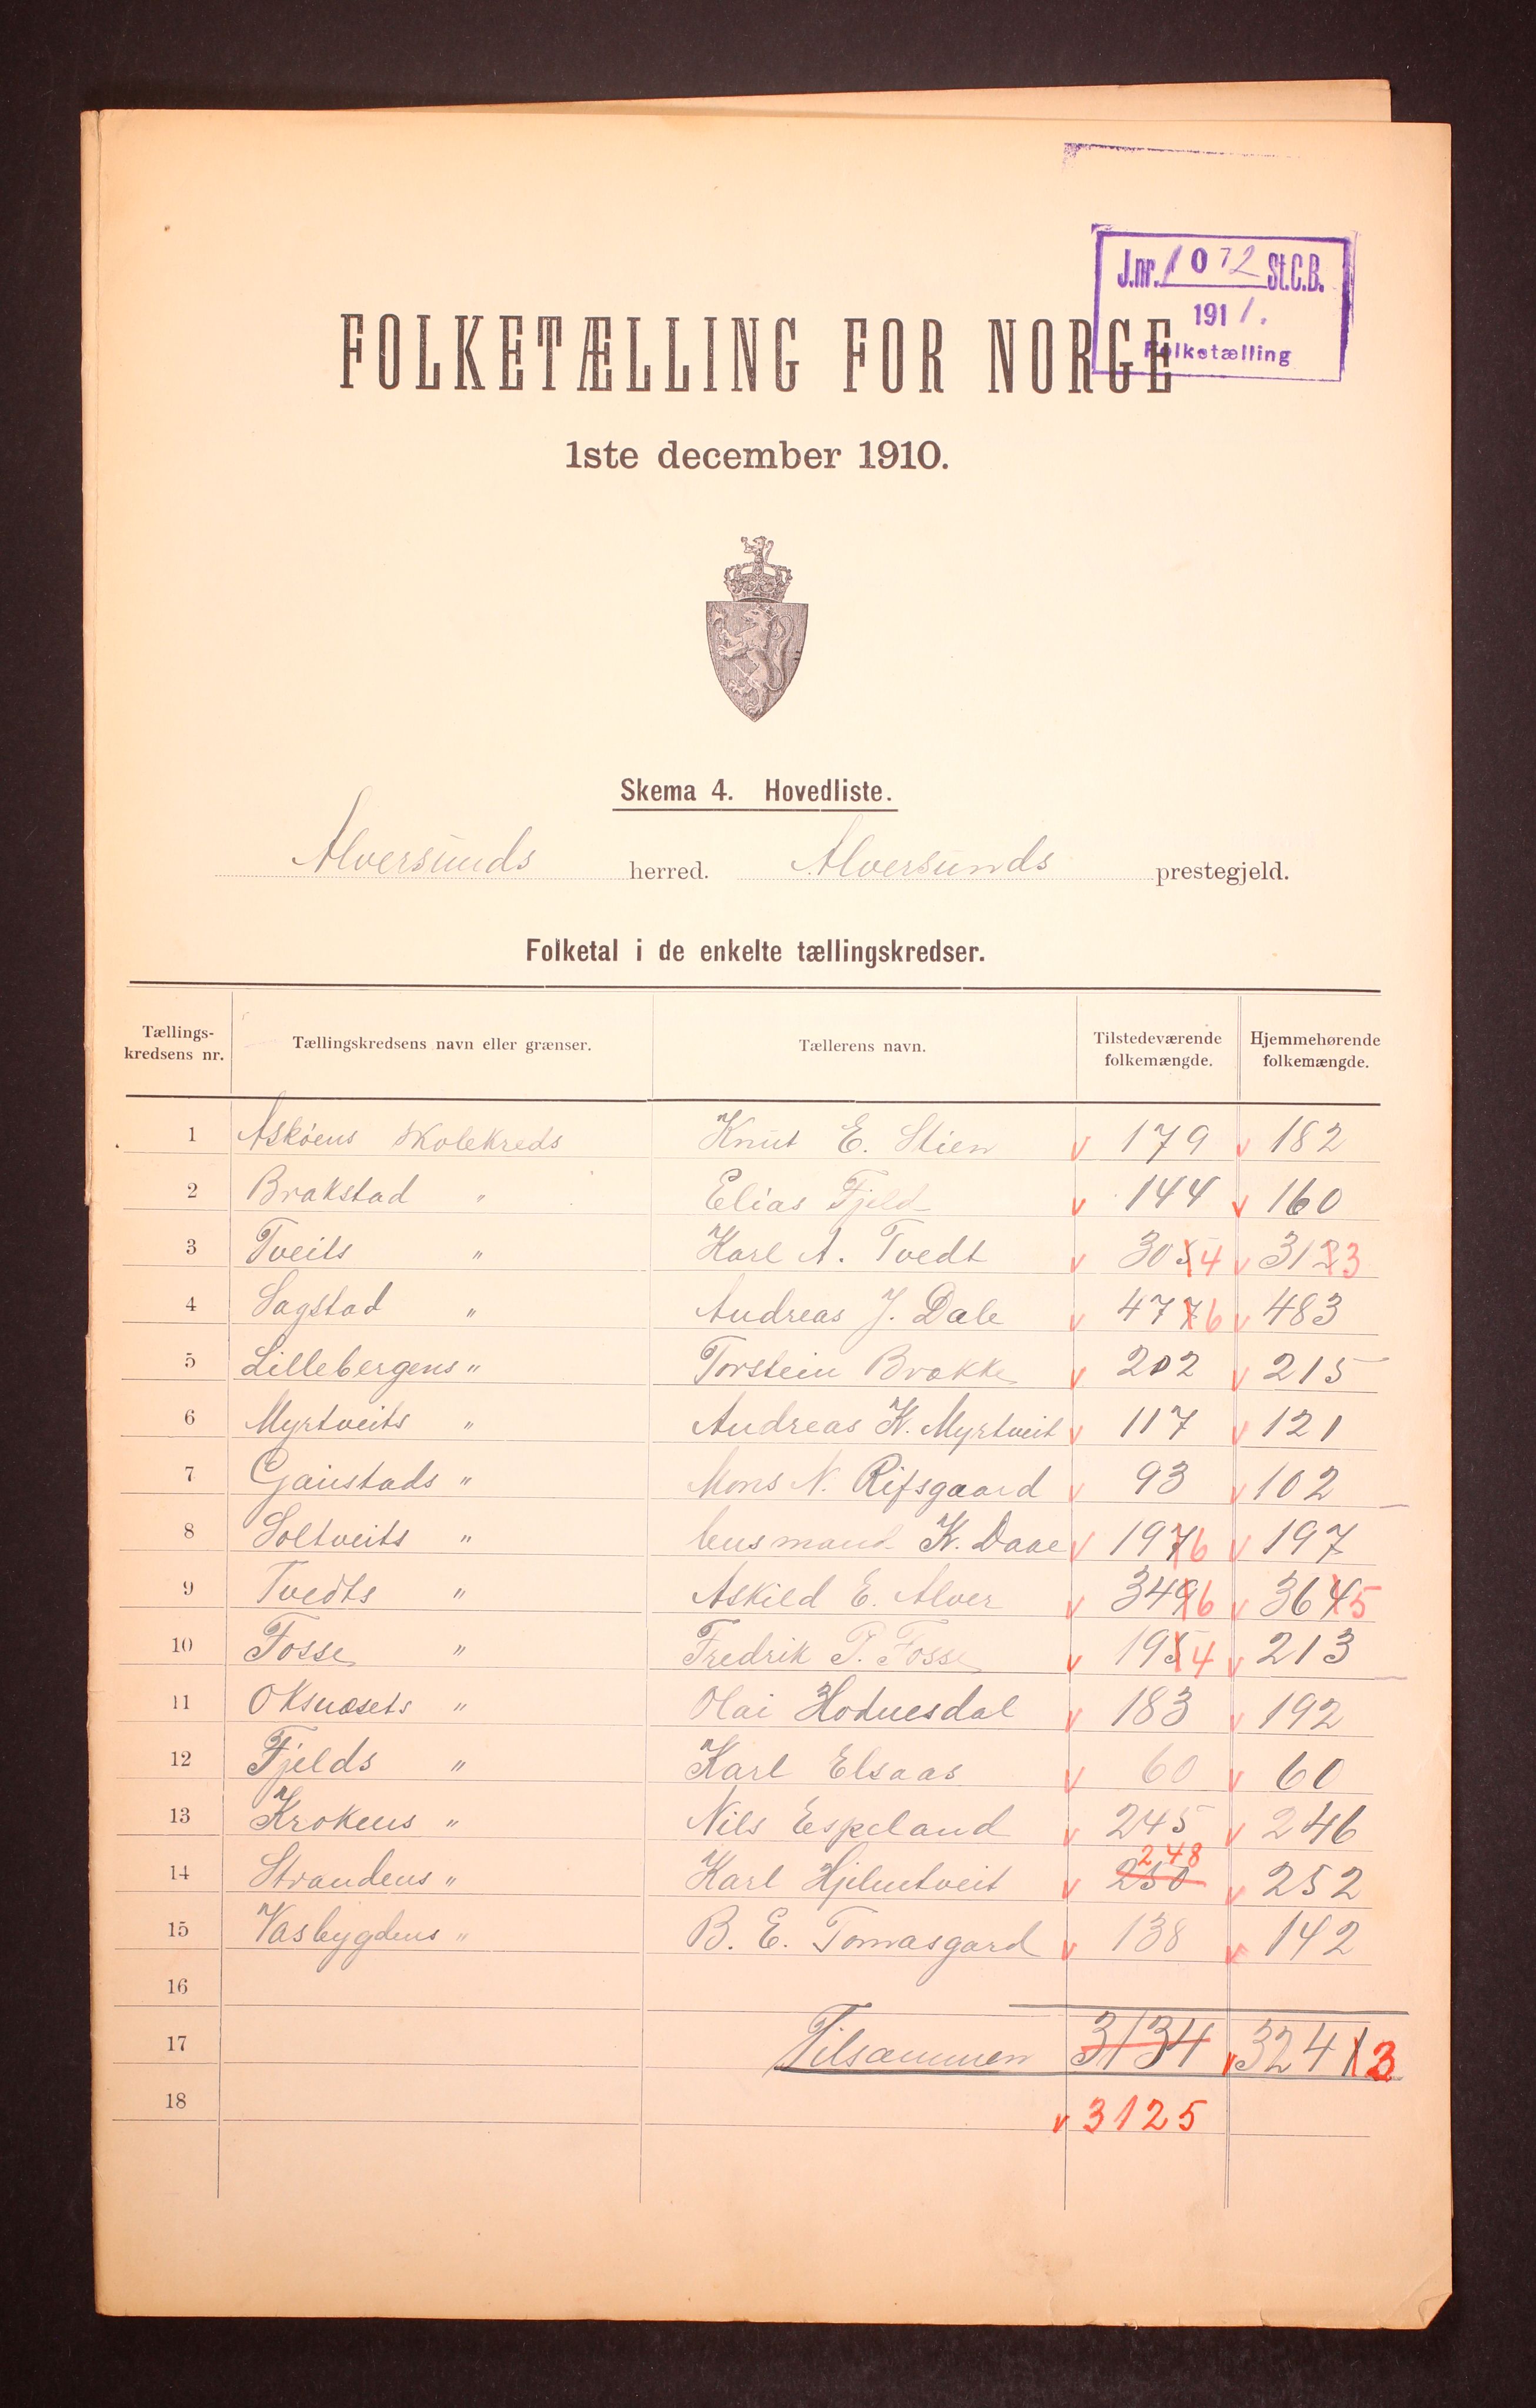 J.nr. 1072 St.C.B.
1911.
Folketælling
FOLKETÆLLING FOR NORGE
1ste december 1910.
Skema 4. Hovedliste.
Alversunds herred. Alversunds prestegjeld.
Folketal i de enkelte tællingskredser.
Tællings-kredsens nr. Tællingskredsens navn eller grænser. Tællerens navn. Tilstedeværende folkemængde. Hjemmehørende folkemængde.
1 Askøens skolekreds Knut E. Stien v 179 v 182
2 Brakstad " Elias Fjeld v 144 v 160
3 Tveits " Karl A. Tvedt v 3054 v 3123
4 Sagstad " Andreas J. Dale v 4776 v 483
5 Lillebergens " Torstein Brakke v 202 v 215
6 Myrtveits " Andreas K. Myrtveit v 117 v 121
7 Gaustads " Mons N. Rifsgaard v 93 v 102
8 Soltveits " K. Daae v 1976 v 197
9 Tvedts " Askild E. Alver v 3496 v 3645
10 Fosse " Fredrik P. Fosse v 1954 v 213
11 Oksnæsets " Olai Hodnesdal v 183 v 192
12 Fjelds " Karl Elsaas v 60 v 60
13 Krokens " Nils Espeland v 245 v 246
14 Strandens " Karl Hjelmtveit v 250 248 v 252
15 Vasbygdens " B. E. Tomasgard v 138 v 142
16
17 Tilsammen 3134 v 32413
18 v 3125